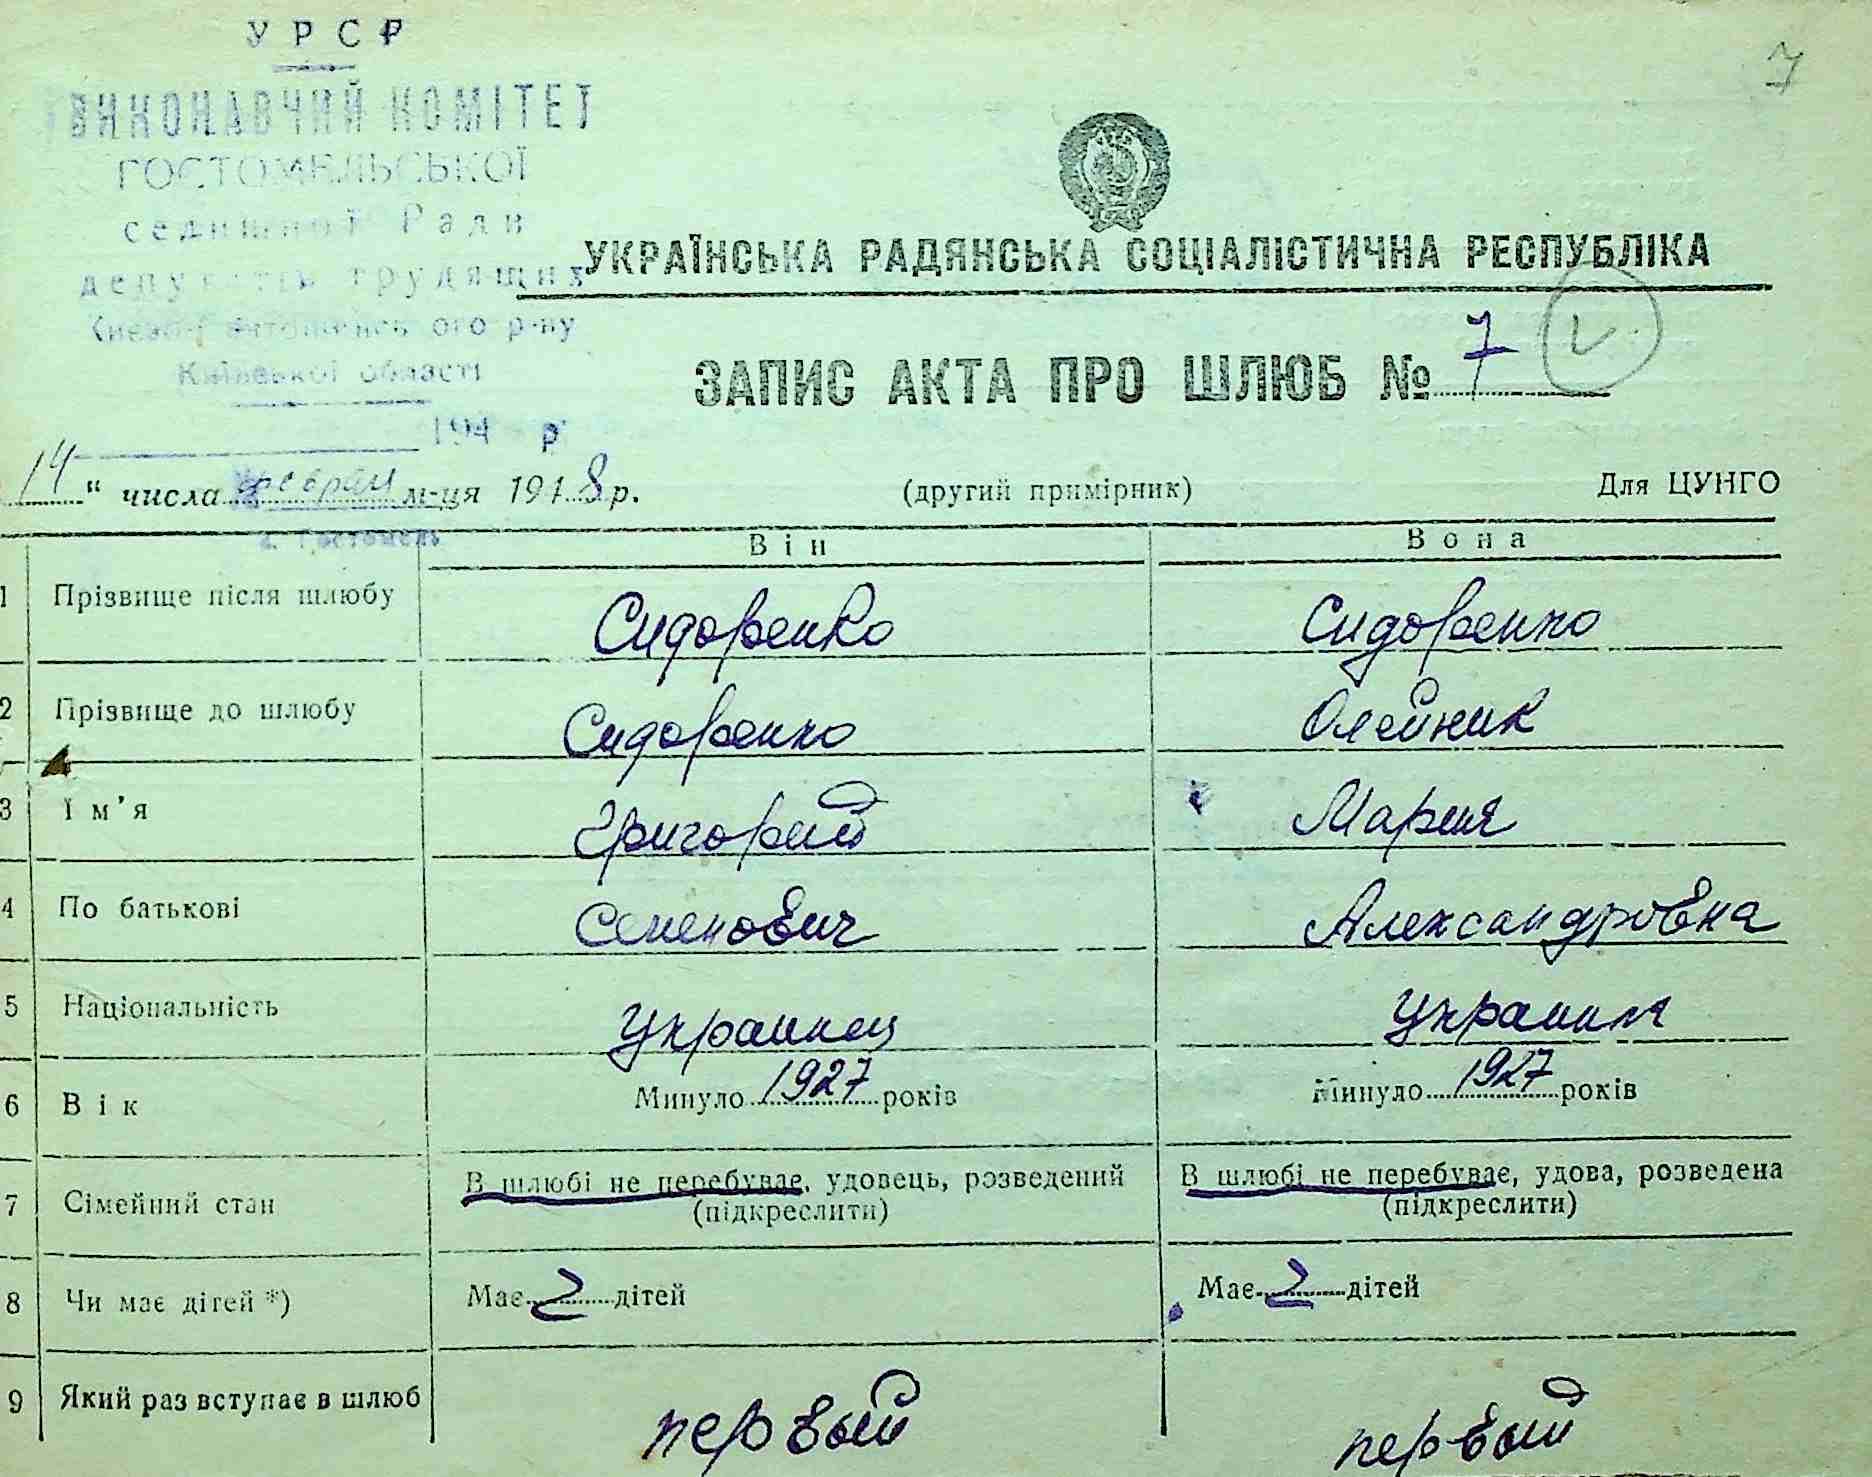 У Р С Р
7
ВИКОНАВЧИЙ КОМІТЕТ
ГОСТОМЕЛЬСЬКОЇ
селищної Ради
депутатів трудящих
р-ну
Київської області
194 р
УКРАЇНСЬКА РАДЯНСЬКА СОЦІАЛІСТИЧНА РЕСПУБЛІКА
ЗАПИС АКТА ПРО ШЛЮБ № 7
14 " числа феврал м-ця 1948 р.
(другий примірник)
Для ЦУНГО
с. Гостомель
Він Вона
1 Прізвище після шлюбу Сидоренко Сидоренко
2 Прізвище до шлюбу Сидоренко Олейник
3 Ім'я Григорий Мария
4 По батькові Семенович Александровна
5 Національність Украинец Украинка
6 Вік Минуло 1927 років Минуло 1927 років
7 Сімейний стан В шлюбі не перебуває, удовець, розведений В шлюбі не перебуває, удова, розведена
(підкреслити) (підкреслити)
8 Чи має дітей *) Має 2 дітей Має 2 дітей
9 Який раз вступає в шлюб первый первый